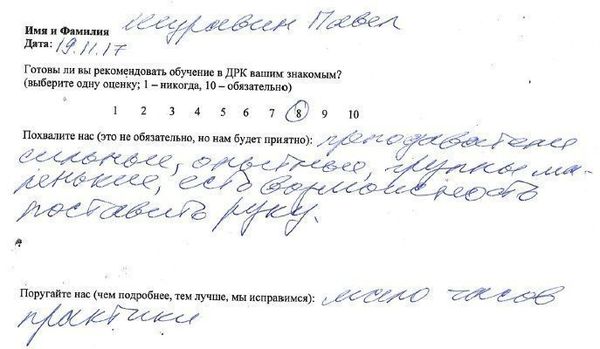 Имя и Фамилия Журавин Павел
Дата: 19.11.17
Готовы ли вы рекомендовать обучение в ДРК вашим знакомым?
(выберите одну оценку; 1 – никогда, 10 – обязательно)
1 2 3 4 5 6 7 8 9 10
Похвалите нас (это не обязательно, но нам будет приятно): преподаватели
сильные, опытные, группы ма-
ренькие, есть возможность
поставить руку.
Поругайте нас (чем подробнее, тем лучше, мы исправимся): мало часов
практики